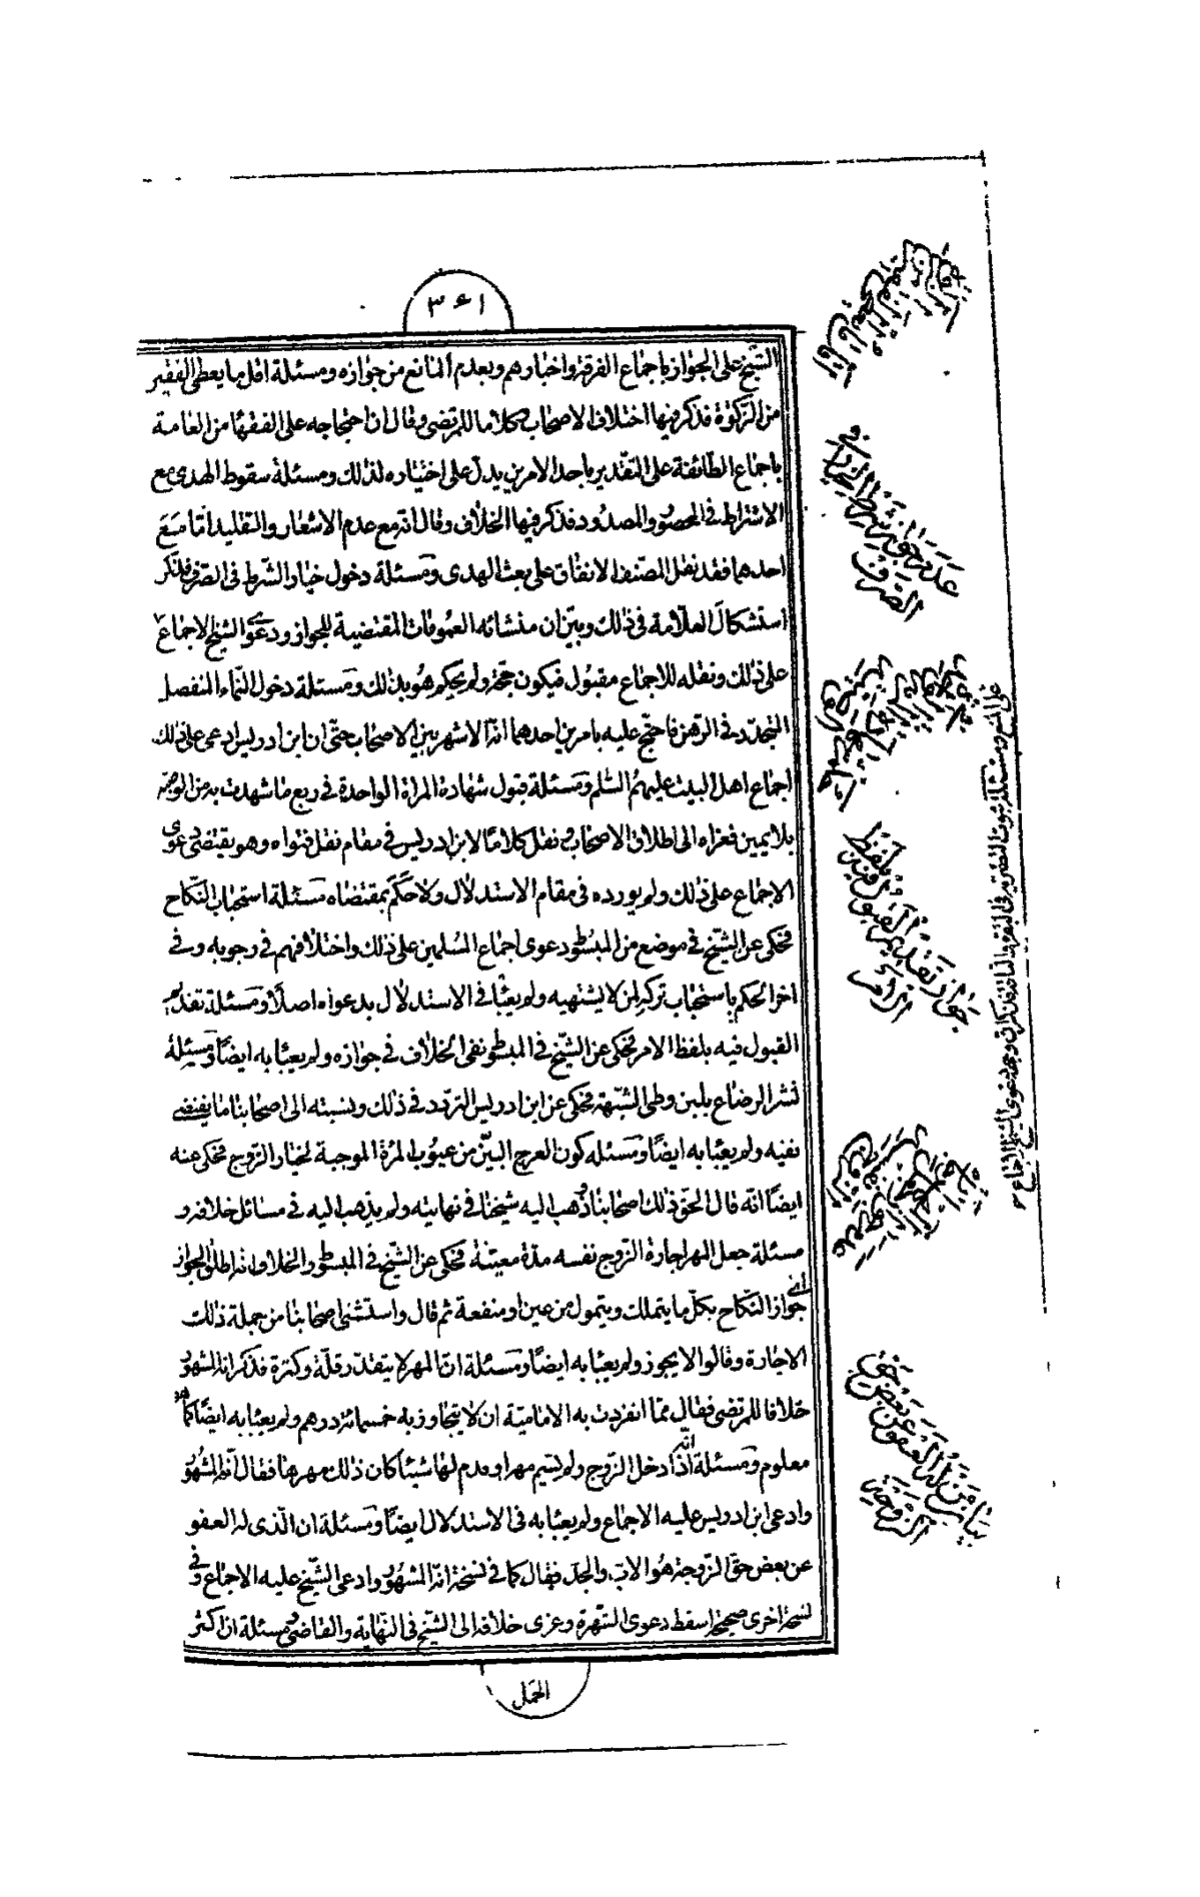 ٣٤١
الشيخ على الجواز باجماع الفرقة واخبارهم وبعدم المانع من جوازه ومسئلة اقل ما يعطى الفقير
من الزكوة فذكر فيها اختلاف الاصحاب وكلاما للمرتضى وقال ان احتجاجه على الفقهاء من العامة
باجماع الطائفة على التقدير باحد الامرين يدل على اختياره لذلك ومسئلة سقوط الهدى مع
الاشتراط فى المحصور والمصدود فذكر فيها الخلاف وقال انه مع عدم الاشعار والتقليد اما مع
احدهما فقد نقل المصنف الاتفاق على بعث الهدى ومسئلة دخول خيار الشرط فى الصرف فذكر
استشكال العلامة فى ذلك وبين ان منشائه العمومات المقتضية للجواز ودعوى الشيخ الاجماع
على ذلك ونقله للاجماع مقبول فيكون حجة ولم يحكم هو بذلك ومسئلة دخول النماء المنفصل
المتجدد فى الرهن فاحتج عليه بامرين احدهما انه الاشهر بين الاصحاب حتى ان ابن ادريس ادعى على ذلك
اجماع اهل البيت عليهم السلم ومسئلة قبول شهادة المراة الواحدة فى ربع ما شهدت به من الوصية
بلا يمين فعزاه الى اطلاق الاصحاب ونقل كلاما لابن ادريس فى مقام نقل فتواه وهو يقتضى دعوى
الاجماع على ذلك ولم يورده فى مقام الاستدلال ولا حكم بمقتضاه مسئلة استحباب النكاح
فحكى عن الشيخ فى موضع من المبسوط دعوى اجماع المسلمين على ذلك واختلافهم فى وجوبه وفى
اخر الحكم باستحباب تركه لمن لا يشتهيه ولم يعبئا فى الاستدلال بدعواه اصلا ومسئلة تقديم
القبول فيه بلفظ الامر فحكى عن الشيخ فى المبسوط نفى الخلاف فى جوازه ولم يعبئا به ايضا ومسئلة
نشر الرضاع بلبن وطى الشبهة فحكى عن ابن ادريس التردد فى ذلك ونسبته الى اصحابنا ما يقتضى
نفيه ولم يعبئا به ايضا ومسئله كون العرج البين من عيوب المراة الموجبة لخيار الزوج فحكى عنه
ايضا انه قال الحق ذلك اصحابنا وذهب اليه شيخنا فى نهايته ولم يذهب اليه فى مسائل خلافه و
مسئلة جعل المهر اجارة الزوج نفسه مدة معينة فحكى عن الشيخ فى المبسوط والخلاف انه اطلق الجواز
اى جواز النكاح بكل ما يتملك ويتمول من عين او منفعة ثم قال واستثنى اصحابنا من جملة ذلك
الاجارة وقالوا لا يجوز ولم يعبئا به ايضا ومسئلة ان المهر لا يتقدر قلة وكثرة فذكر انه المشهور
خلافا للمرتضى فقال مما انفردت به الامامية ان لا يتجاوز به خمسمائة درهم ولم يعبئا به ايضا كما هو
معلوم ومسئلة انه اذا دخل الزوج ولم يسم مهرا وقدم لها شيئا كان ذلك مهرها فقال انه المشهور
وادعى ابن ادريس عليه الاجماع ولم يعبئا به فى الاستدلال ايضا ومسئلة ان الذى له العفو
عن بعض حق الزوجة هو الاب والجد فقال كما فى نسخة انه المشهور وادعى الشيخ عليه الاجماع وفى
نسخة اخرى صحيحة اسقط دعوى الشهرة وعزى خلافه الى الشيخ فى النهاية والقاضى ومسئلة ان اكثر
الحمل
عدم جواز شرط الخيار فى
الصرف
جواز تقديم القبول فيه بلفظ
الامر
بيان من له العفو عن بعض حق
الزوجة